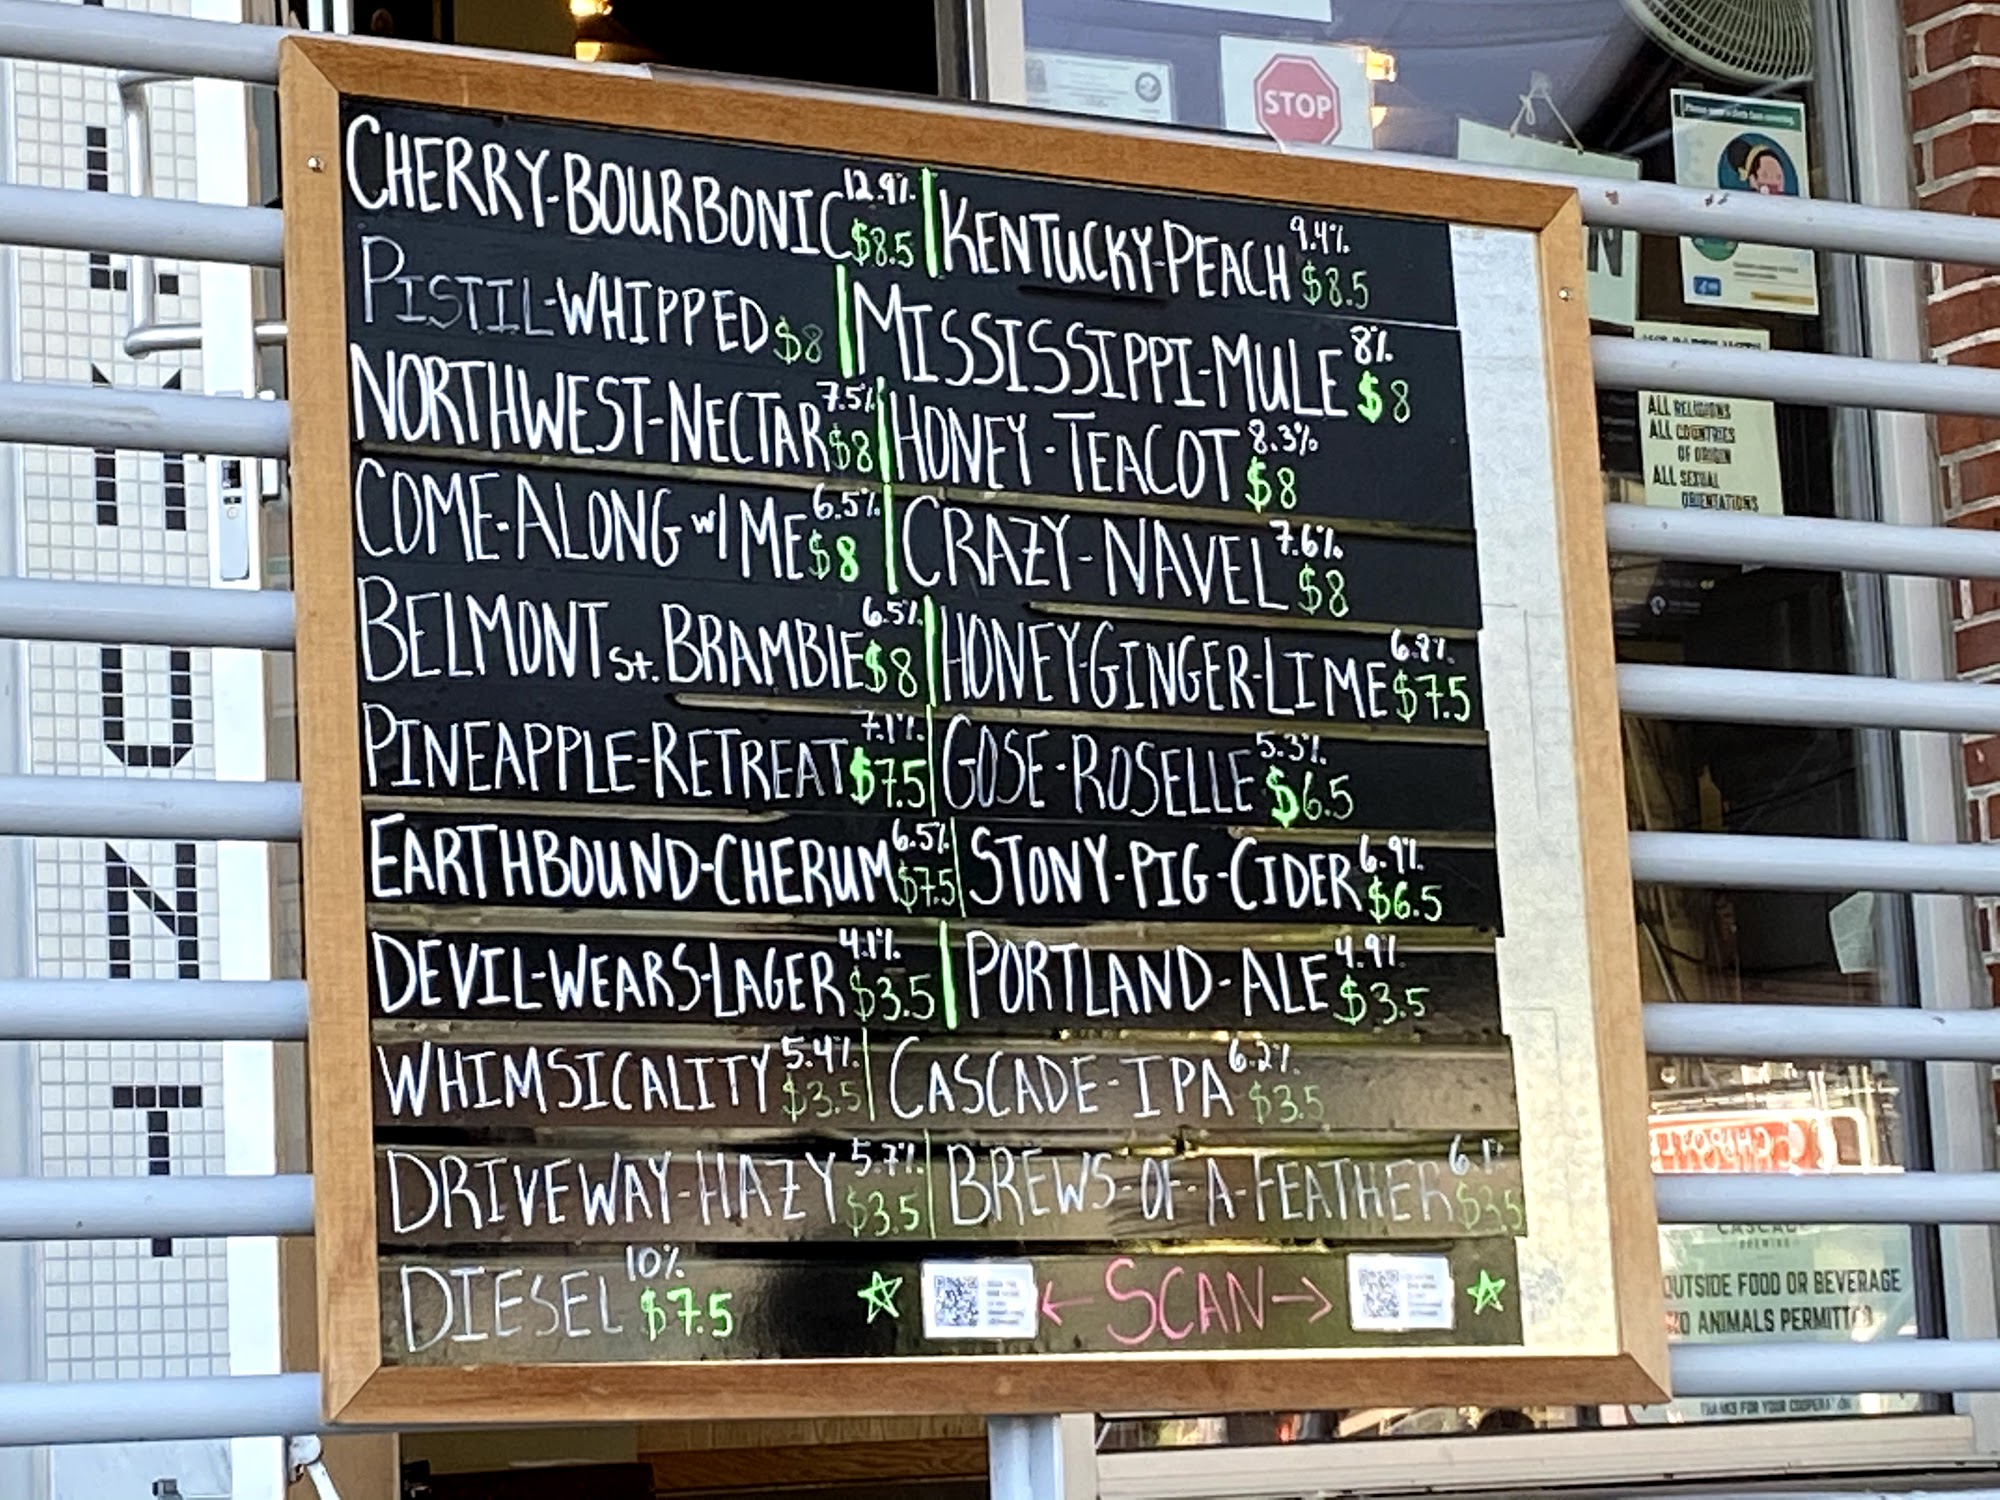 STOP
CHERRY-BOURBONIC 12.9% $8.5 | KENTUCKY-PEACH 9.4% $8.5
PISTIL-WHIPPED $8 | MISSISSIPPI-MULE 8% $8
NORTHWEST-NECTAR 7.5% $8 | HONEY-TEACOT 8.3% $8
COME-ALONG w/ ME 6.5% $8 | CRAZY-NAVEL 7.6% $8
BELMONT St. BRAMBlE 6.5% $8 | HONEY-GINGER-LIME 6.8% $7.5
PINEAPPLE-RETREAT 7.1% $7.5 | GOSE-ROSELLE 5.3% $6.5
EARTHBOUND-CHERUM 6.5% $7.5 | STONY-PIG-CIDER 6.9% $6.5
DEVIL-WEARS-LAGER 4.1% $3.5 | PORTLAND-ALE 4.9% $3.5
WHIMSICALITY 5.4% $3.5 | CASCADE-IPA 6.2% $3.5
DRIVEWAY-HAZY 5.7% $3.5 | BREWS-OF-A-FEATHER 6.1% $3.5
DIESEL 10% $7.5 ← SCAN →
ALL RELIGIONS
ALL COUNTRIES
OF ORIGIN
ALL SEXUAL
ORIENTATIONS
CASCADE
BREWING
OUTSIDE FOOD OR BEVERAGE
NO ANIMALS PERMITTED
THANKS FOR YOUR COOPERATION